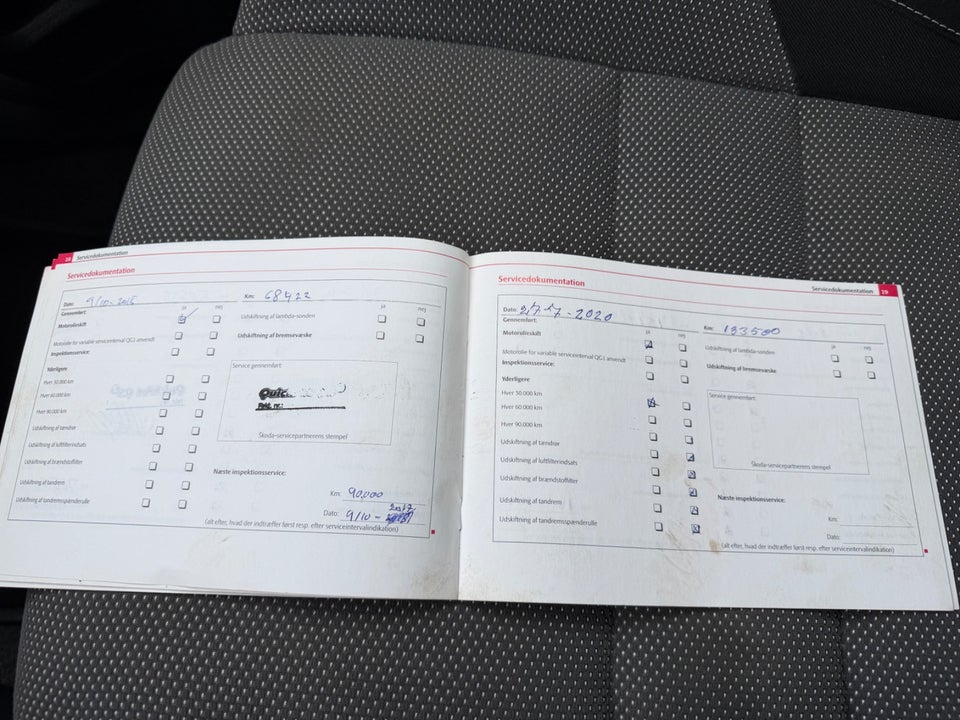 28 Servicedokumentation
Servicedokumentation
Dato: 9/10-2016 Km: 68422
Gennemført: ja nej ja nej
Motorolieskift Udskiftning af lambda-sonden
Motorolie for variable serviceinterval QG1 anvendt Udskiftning af bremsevæske
Inspektionsservice:
Yderligere Service gennemført:
Hver 30.000 km
Hver 60.000 km
Hver 90.000 km
Udskiftning af tændrør Škoda-servicepartnerens stempel
Udskiftning af luftfilterindsats
Udskiftning af brændstoffilter Næste inspektionsservice:
Udskiftning af tandrem Km: 90.000
Udskiftning af tandremsspænderulle Dato: 9/10- 2017
(alt efter, hvad der indtræffer først resp. efter serviceintervalindikation)
Servicedokumentation 29
Servicedokumentation
Dato: 27/7-2020 Km: 133500
Gennemført: ja nej ja nej
Motorolieskift Udskiftning af lambda-sonden
Motorolie for variable serviceinterval QG1 anvendt Udskiftning af bremsevæske
Inspektionsservice:
Yderligere Service gennemført:
Hver 30.000 km
Hver 60.000 km
Hver 90.000 km
Udskiftning af tændrør
Udskiftning af luftfilterindsats Škoda-servicepartnerens stempel
Udskiftning af brændstoffilter
Udskiftning af tandrem Næste inspektionsservice:
Udskiftning af tandremsspænderulle Km:
Dato:
(alt efter, hvad der indtræffer først resp. efter serviceintervalindikation)